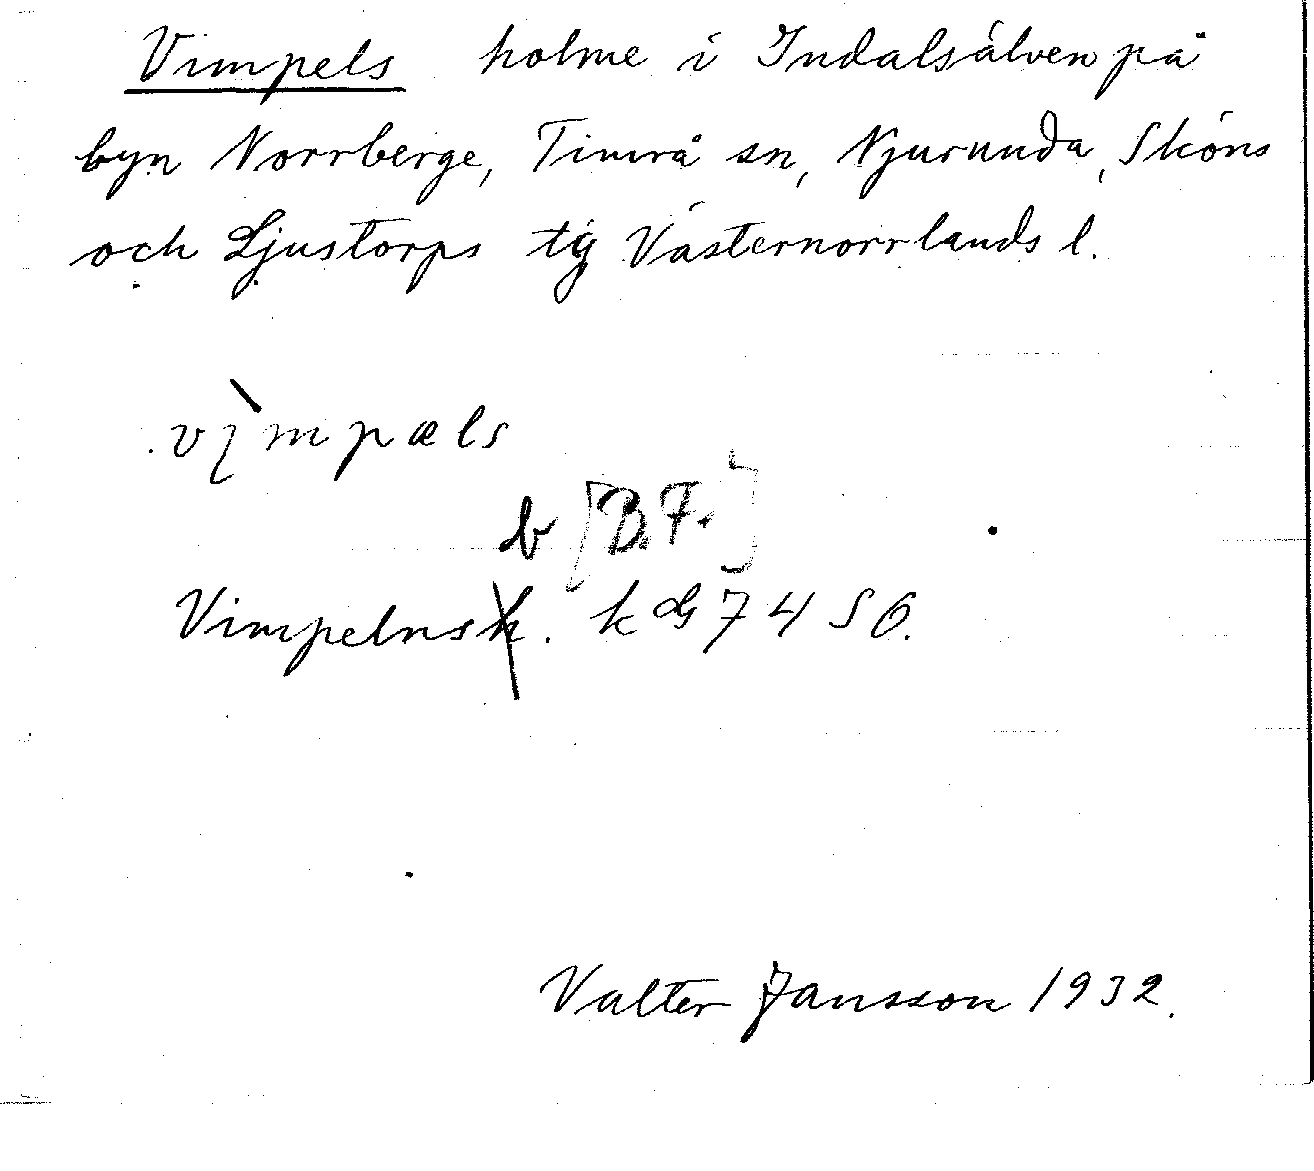 Vimpels holme i Indalsälven på
byn Norrberge, Timrå sn, Njurunda, Sköns
och Ljustorps tg Västernorrlands l.
vìmpæls
b [B.F.]
Vimpelnsh. k dG 74 SO.
Valter Jansson 1932.